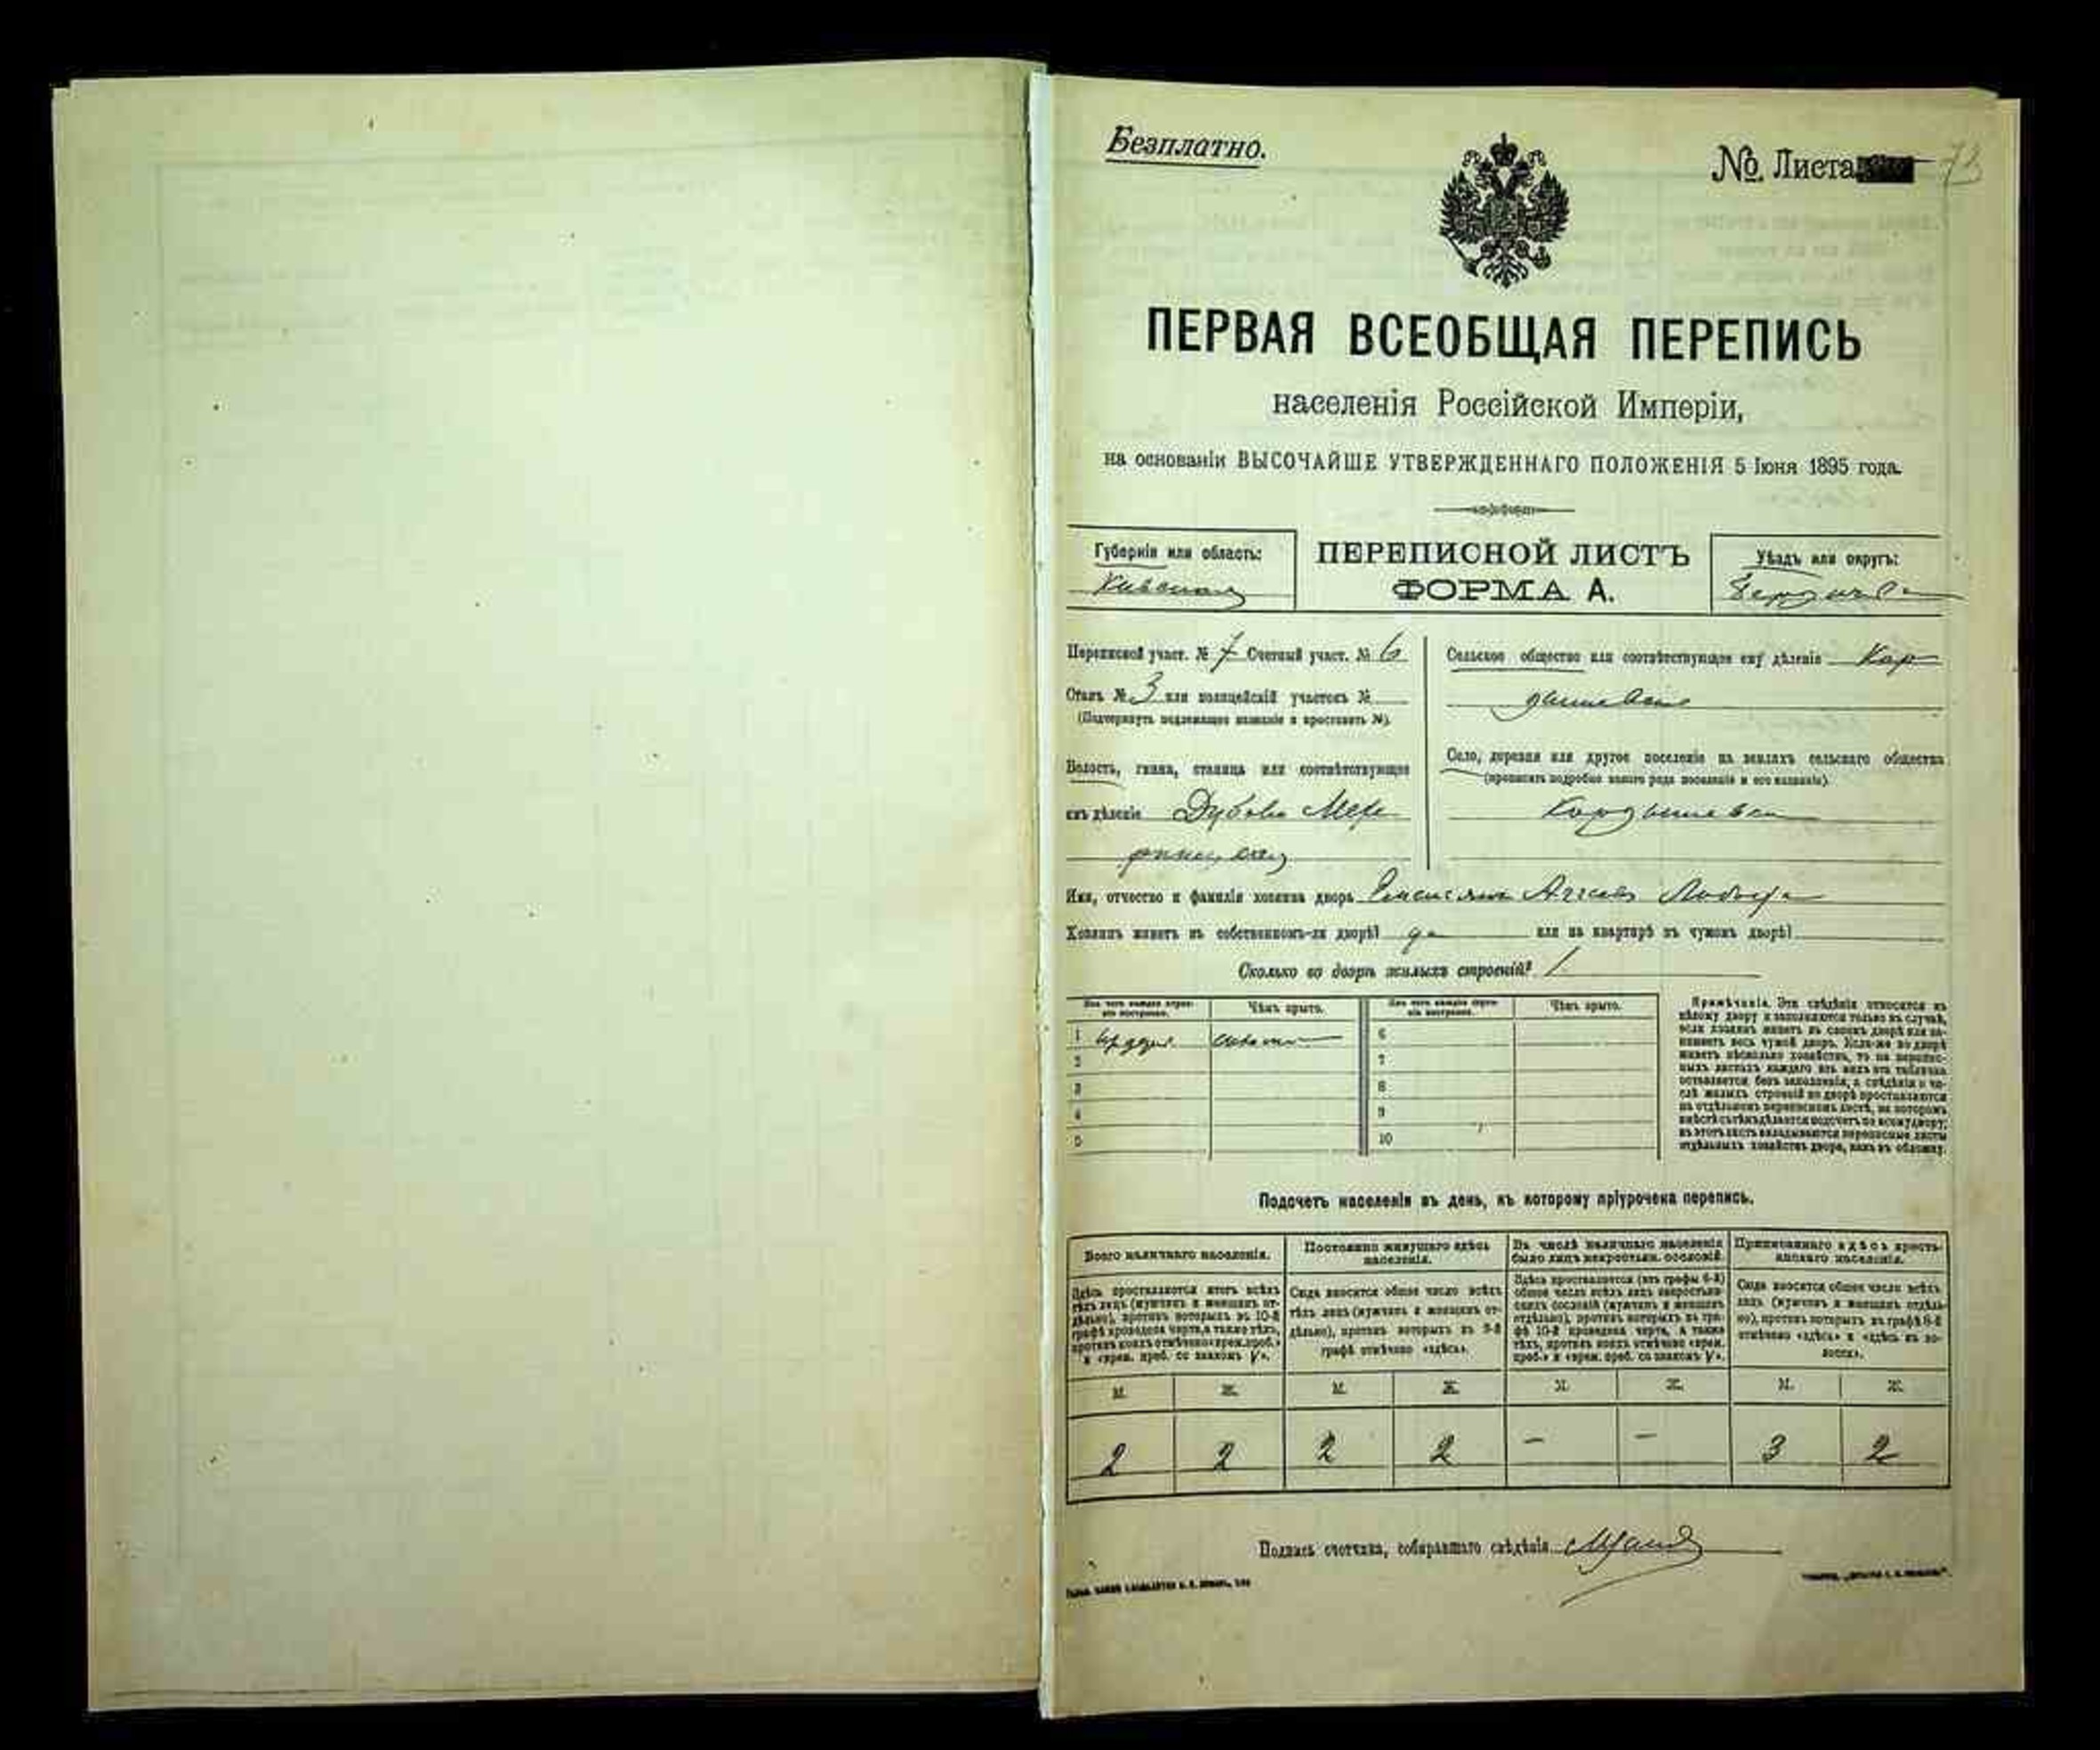 Безплатно.
№ Листа 73
ПЕРВАЯ ВСЕОБЩАЯ ПЕРЕПИСЬ
населенія Россійской Имперіи,
на основаніи ВЫСОЧАЙШЕ УТВЕРЖДЕННАГО ПОЛОЖЕНІЯ 5 Іюня 1895 года.
Губернія или область:
Кіевская
ПЕРЕПИСНОЙ ЛИСТЪ
ФОРМА А.
Уѣздъ или округъ:
Переписной участ. № 7 Счетный участ. № 6
Станъ № 3 или полицейскій участокъ №
(Подчеркнуть подлежащее названіе и проставить №).
Волость, гмина, станица или соотвѣтствующее
имъ дѣленіе Дубово
Сельское общество или соотвѣтствующее ему дѣленіе Кор
дышевка
Село, деревня или другое поселеніе на земляхъ сельскаго общества
(прописать подробно какого рода поселеніе и его названіе).
Кордышевка
Имя, отчество и фамилія хозяина двора
Хозяинъ живетъ въ собственномъ-ли дворѣ? да или на квартирѣ въ чужомъ дворѣ?
Сколько во дворѣ жилыхъ строеній? 1
Изъ чего каждое строе-
ніе построено.
Чѣмъ крыто.
Изъ чего каждое строе-
ніе построено.
Чѣмъ крыто.
1
2
3
4
5
6
7
8
9
10
Примѣчаніе. Эти свѣдѣнія относятся къ
цѣлому двору и заполняются только въ случаѣ,
если хозяинъ живетъ въ своемъ дворѣ или на-
нимаетъ весь чужой дворъ. Если-же во дворѣ
живетъ нѣсколько хозяйствъ, то на перепис-
ныхъ листахъ каждаго изъ нихъ эта табличка
оставляется безъ заполненія, а свѣдѣнія о чи-
слѣ жилыхъ строеній во дворѣ проставляются
на отдѣльномъ переписномъ листѣ, на которомъ
вмѣстѣ съ тѣмъ дѣлается подсчетъ по всему двору;
въ этотъ листъ вкладываются переписные листы
отдѣльныхъ хозяйствъ двора, какъ въ обложку.
Подсчетъ населенія въ день, къ которому пріурочена перепись.
Всего наличнаго населенія.
Здѣсь проставляются итогъ всѣхъ
тѣхъ лицъ (мужчинъ и женщинъ от-
дѣльно), противъ которыхъ въ 10-й
графѣ проведена черта, а также тѣхъ,
противъ коихъ отмѣчено «врем. преб.»
и «врем. преб. со знакомъ V».
Постоянно живущаго здѣсь
населенія.
Сюда вносится общее число всѣхъ
тѣхъ лицъ (мужчинъ и женщинъ от-
дѣльно), противъ которыхъ въ 9-й
графѣ отмѣчено «здѣсь».
Въ числѣ наличнаго населенія
было лицъ некрестьян. сословій.
Здѣсь проставляется (изъ графы 6-й)
общее число всѣхъ лицъ некрестьян-
скихъ сословій (мужчинъ и женщинъ
отдѣльно), противъ которыхъ въ гра-
фѣ 10-й проведена черта, а также
тѣхъ, противъ коихъ отмѣчено «врем.
преб.» и «врем. преб. со знакомъ V».
Приписаннаго здѣсь кресть-
янскаго населенія.
Сюда вносится общее число всѣхъ
лицъ (мужчинъ и женщинъ отдѣль-
но), противъ которыхъ въ графѣ 8-й
отмѣчено «здѣсь» и «здѣсь въ во-
лости».
М. Ж. М. Ж. М. Ж. М. Ж.
2 2 2 2 — — 3 2
Подпись счетчика, собиравшаго свѣдѣнія